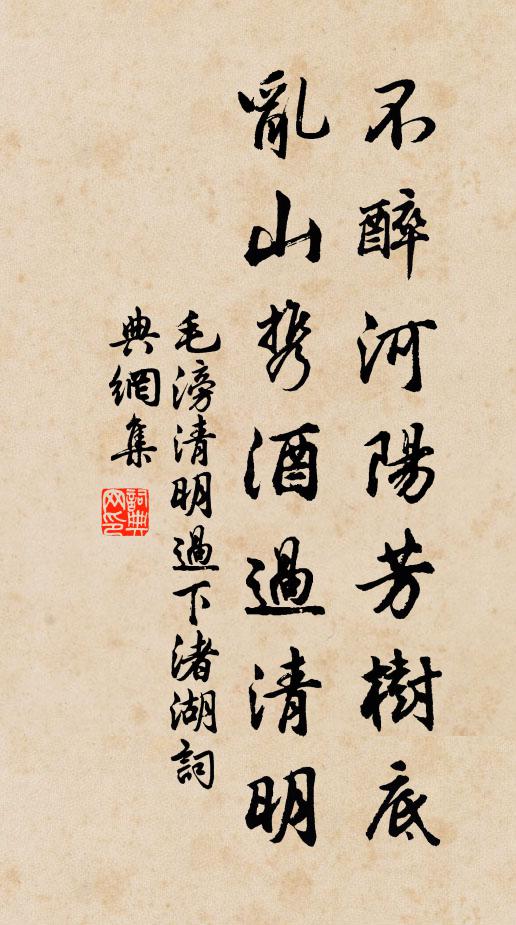 不醉河陽芳樹底
亂山携酒過清明
毛滂清明過下渚湖詞
典網集
詞典网印